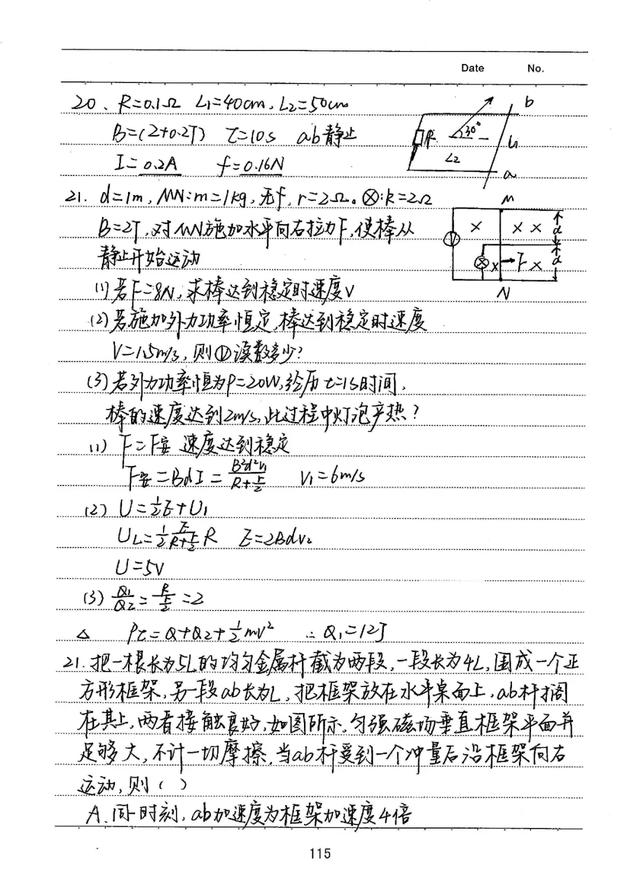 Date No.
20、R=0.1Ω L₁=40cm, L₂=50cm
B=(2+0.2T) t=10s ab静止
I=0.2A f=0.16N
R 30° L₂ L₁ a b
21. d=1m, MN:m=1kg, 无f, r=2Ω。⊗:R=2Ω
B=2T, 对MN施加水平向右拉力F, 使棒从
静止开始运动
M N V F d d
(1) 若F=8N, 求棒达到稳定时速度V
(2) 若施加外力功率恒定, 棒达到稳定时速度
V=1.5m/s, 则Ⓥ读数多少?
(3) 若外力功率恒为P=20W, 经历t=1s时间,
棒的速度达到2m/s, 此过程中灯泡产热?
(1) F=F安 速度达到稳定
F安=BdI=B²d²v₁/(R+r/2) V₁=6m/s
(2) U=½E+U₁
U_L=½E/(R+r/2)R E=2Bdv₂
U=5V
(3) Q₁/Q₂=R/(r/2)=2
△ Pt=Q₁+Q₂+½mv² ∴Q₁=12J
21. 把一根长为5L的均匀金属杆截为两段, 一段长为4L, 围成一个正
方形框架, 另一段ab长为L, 把框架放在水平桌面上, ab杆搁
在其上, 两者接触良好, 如图所示, 匀强磁场垂直框架平面并
足够大, 不计一切摩擦, 当ab杆受到一个冲量后沿框架向右
运动, 则( )
A. 同时刻, ab加速度为框架加速度4倍
115